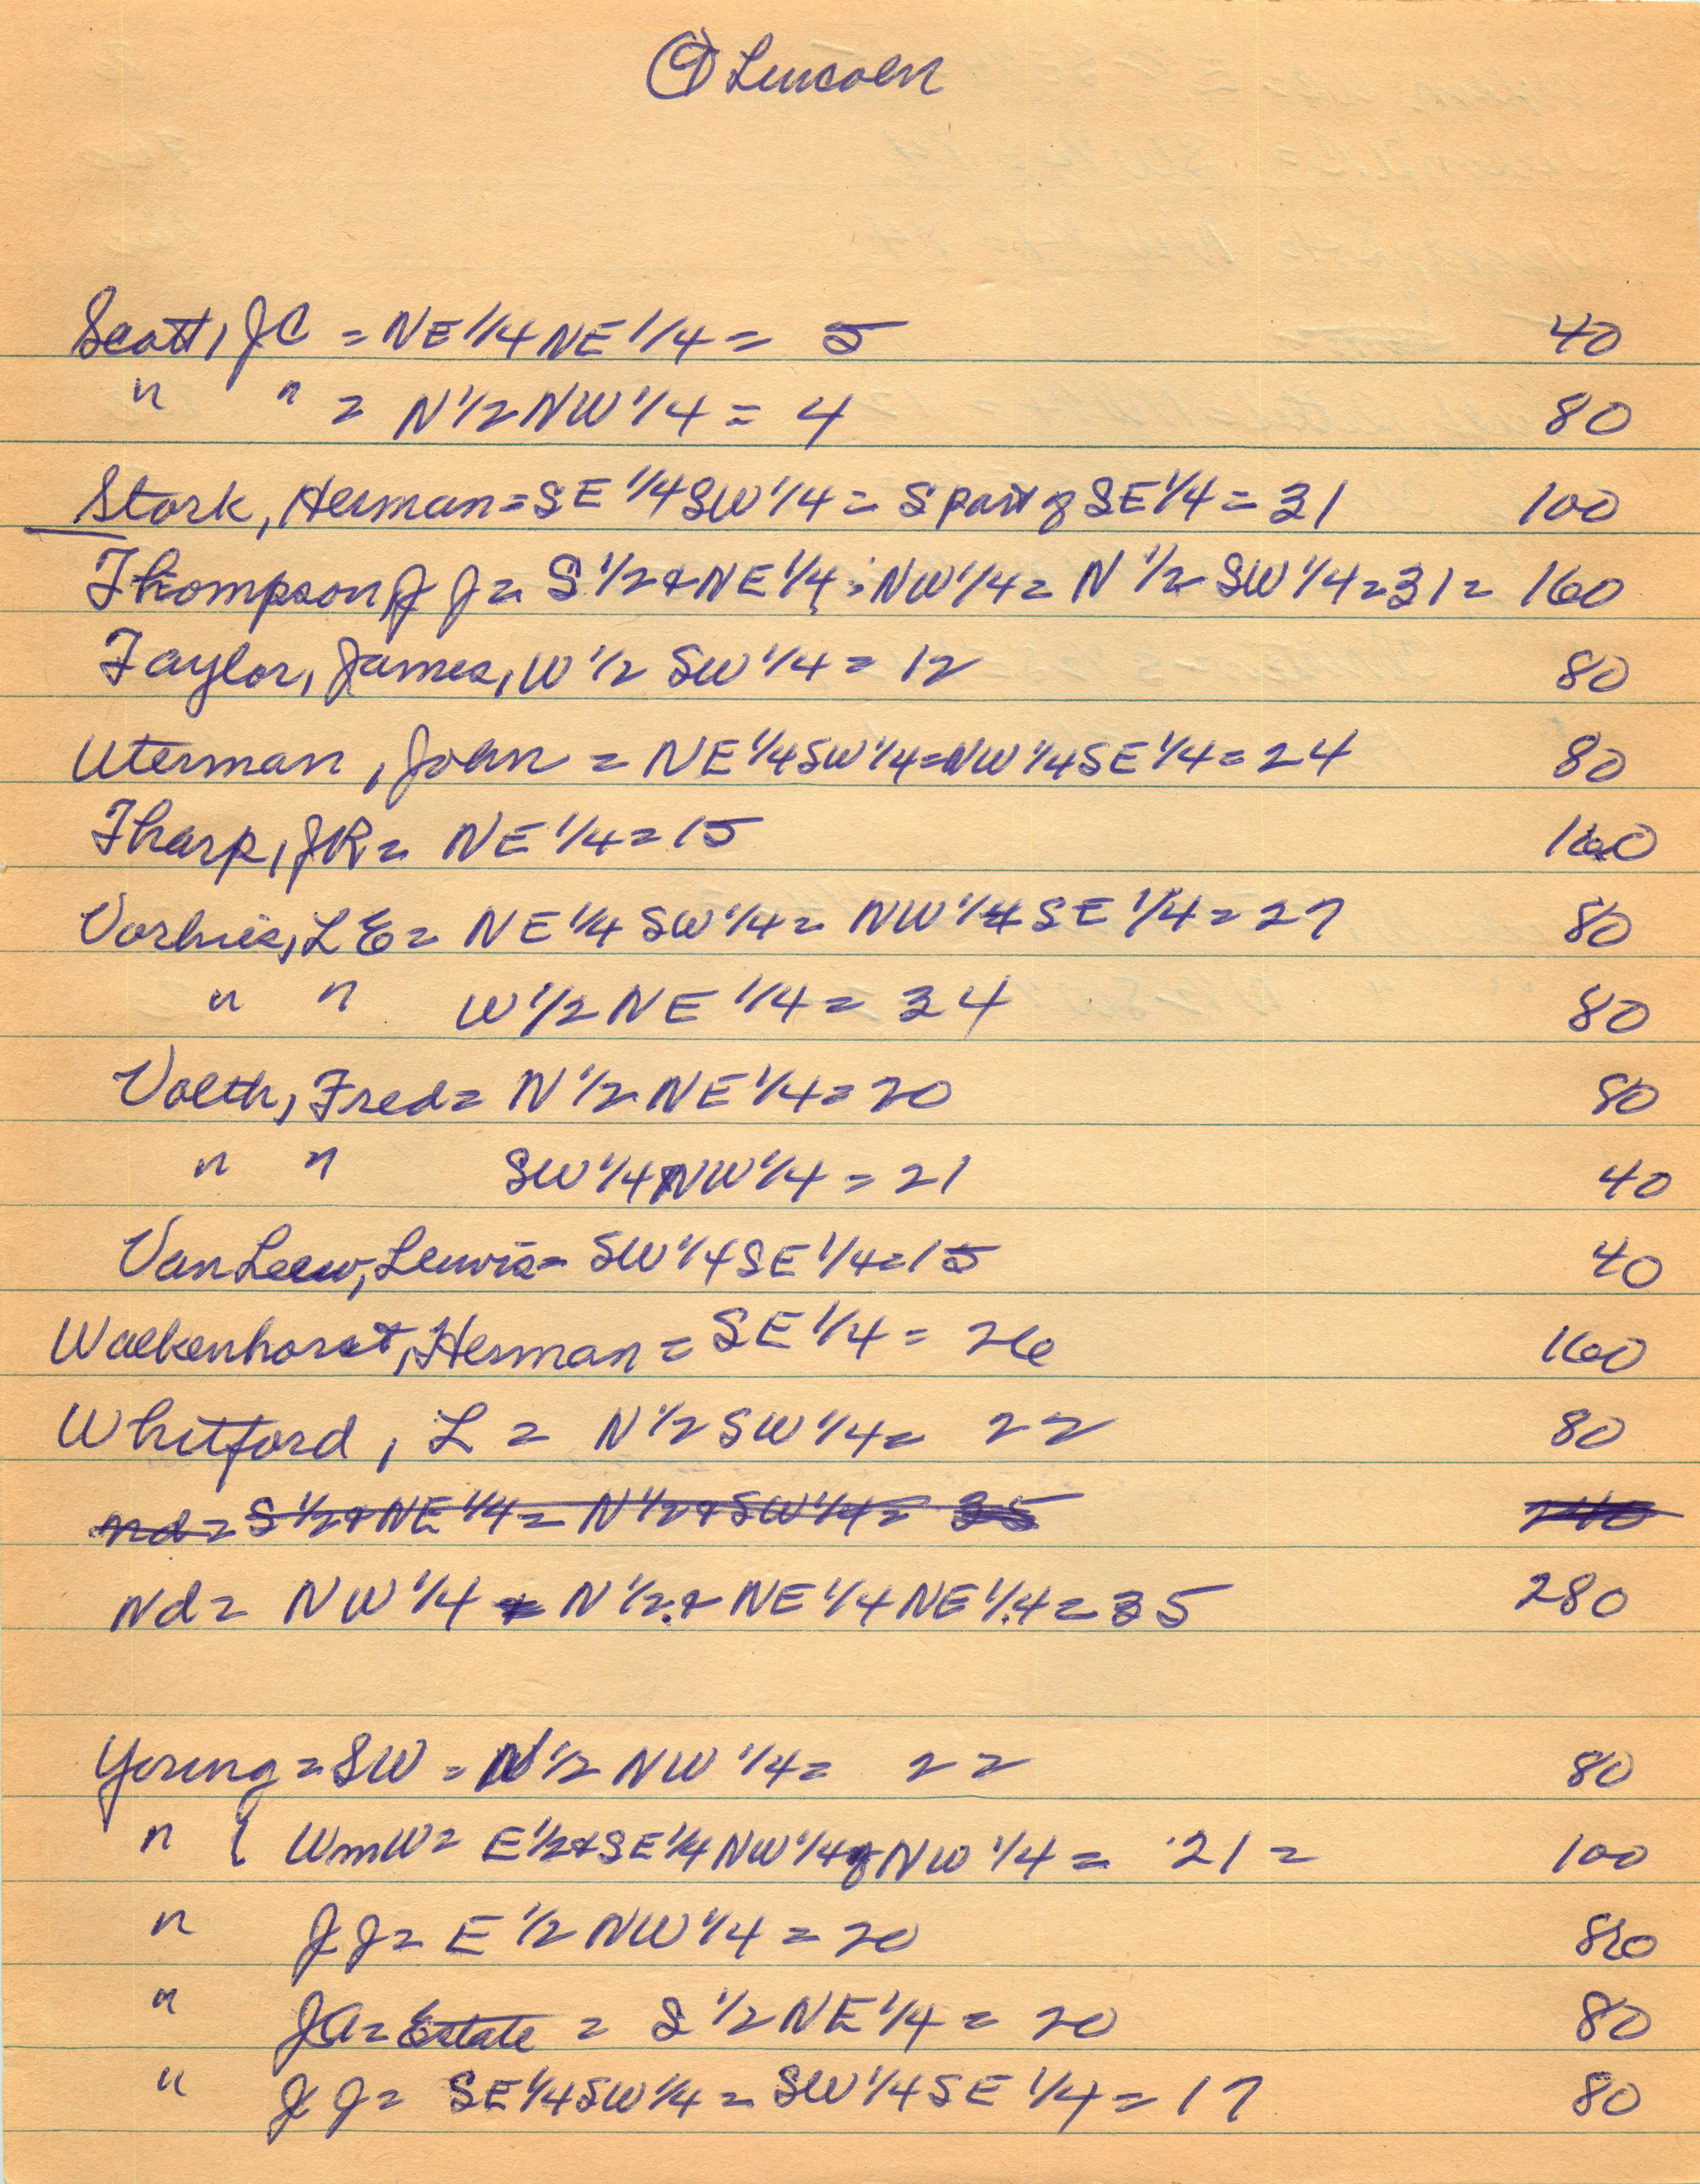 ④ Lincoln
Scott, JC = NE 1/4 NE 1/4 = 5 40
" " = N 1/2 NW 1/4 = 4 80
Stork, Herman = SE 1/4 SW 1/4 = S part of SE 1/4 = 31 100
Thompson, J J = S 1/2 & NE 1/4 ; NW 1/4 = N 1/2 SW 1/4 = 31 = 160
Taylor, James, W 1/2 SW 1/4 = 12 80
Uterman, John = NE 1/4 SW 1/4 = NW 1/4 SE 1/4 = 24 80
Tharp, JR = NE 1/4 = 15 160
Vorhies, L E = NE 1/4 SW 1/4 = NW 1/4 SE 1/4 = 27 80
" " W 1/2 NE 1/4 = 34 80
Voeth, Fred = N 1/2 NE 1/4 = 20 80
" " SW 1/4 NW 1/4 = 21 40
Van Leew, Lewis = SW 1/4 SE 1/4 = 15 40
Walkenhorst, Herman = SE 1/4 = 26 160
Whitford, L = N 1/2 SW 1/4 = 22 80
nd = S 1/2 & NE 1/4 = N 1/2 & SW 1/4 = 35 240
Nd = NW 1/4 = N 1/2 & NE 1/4 NE 1/4 = 35 280
Young = SW = N 1/2 NW 1/4 = 22 80
" { WmW = E 1/2 & SE 1/4 NW 1/4 of NW 1/4 = 21 = 100
" J J = E 1/2 NW 1/4 = 20 80
" JA = Estate = S 1/2 NE 1/4 = 20 80
" J J = SE 1/4 SW 1/4 = SW 1/4 SE 1/4 = 17 80